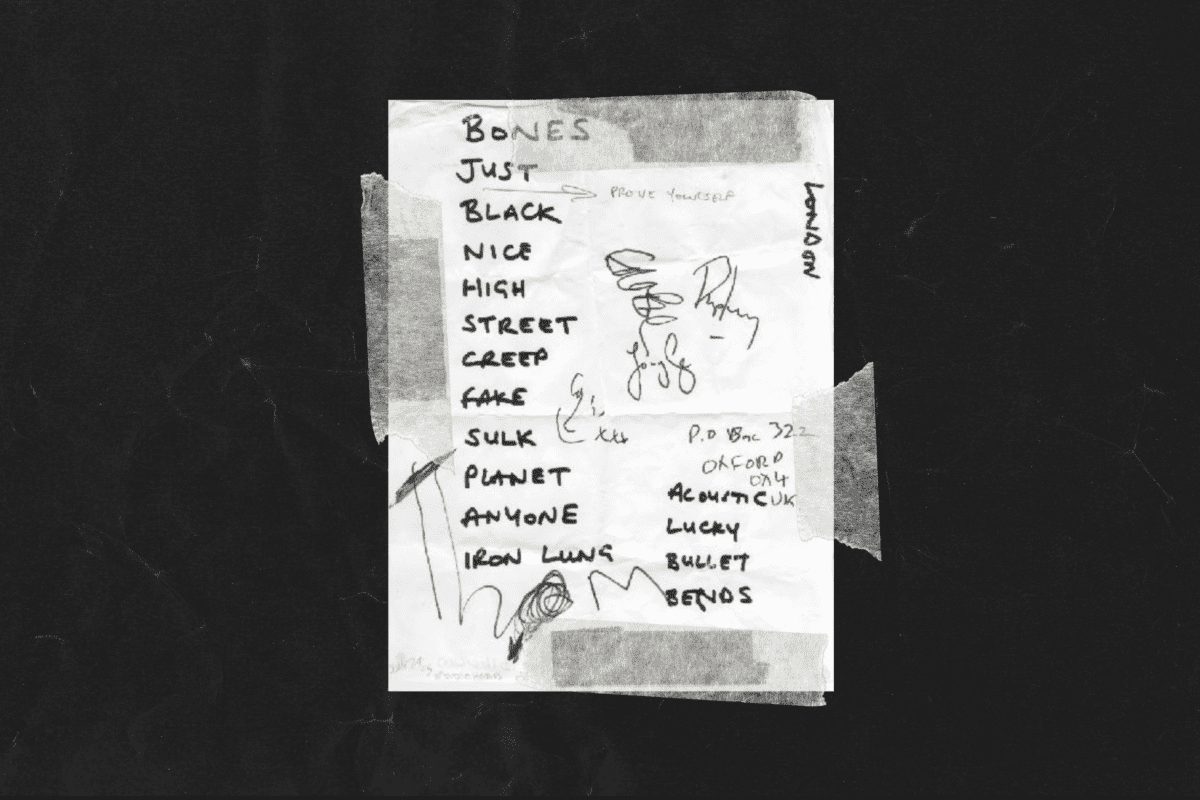 BONES
JUST
PROVE YOURSELF
BLACK
NICE
HIGH
STREET
CREEP
FAKE
SULK
PLANET
ANYONE
IRON LUNG
LONDON
xxx
P.O Box 322
OXFORD
OX4
UK
ACOUSTIC
LUCKY
BULLET
BENDS
THOM